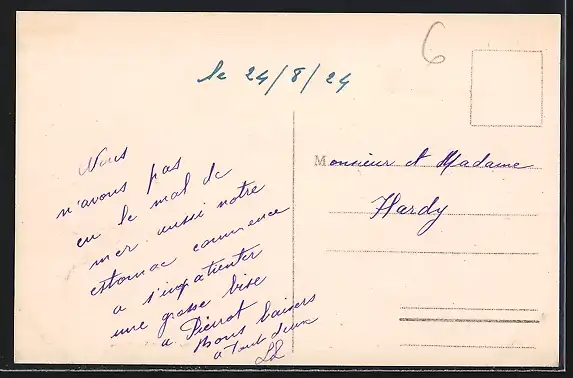 6
le 24/8/24
Nous
n'avons pas
eu le mal de
mer aussi notre
estomac commence
a s'impatienter
une grosse bise
a Pierrot
Bons baisers
a tout deux
Monsieur et Madame
Hardy